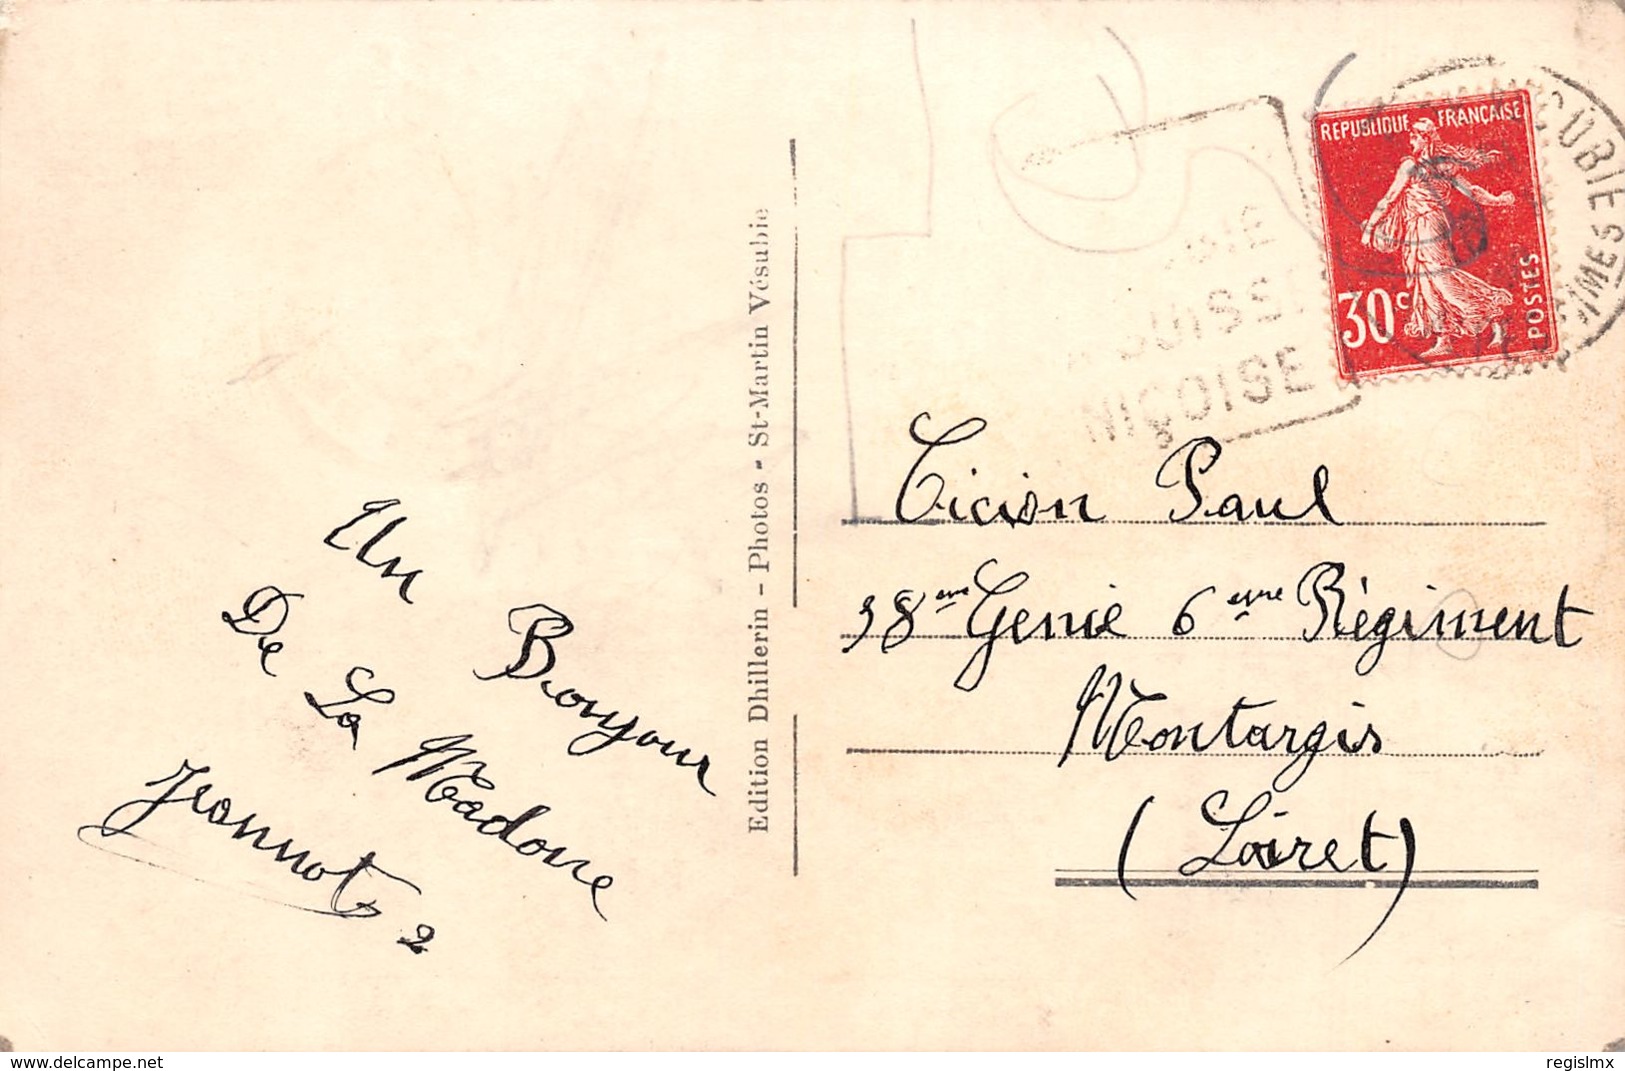 Un Bonjour
De La Madone
Jeannot
2
Edition Dhillerin - Photos - St-Martin Vésubie
RÉPUBLIQUE FRANÇAISE
30c
POSTES
SUISSE
NIÇOISE
Ticion Paul
38eme Genie 6eme Régiment
Montargis
(Loiret)
www.delcampe.net
regislmx